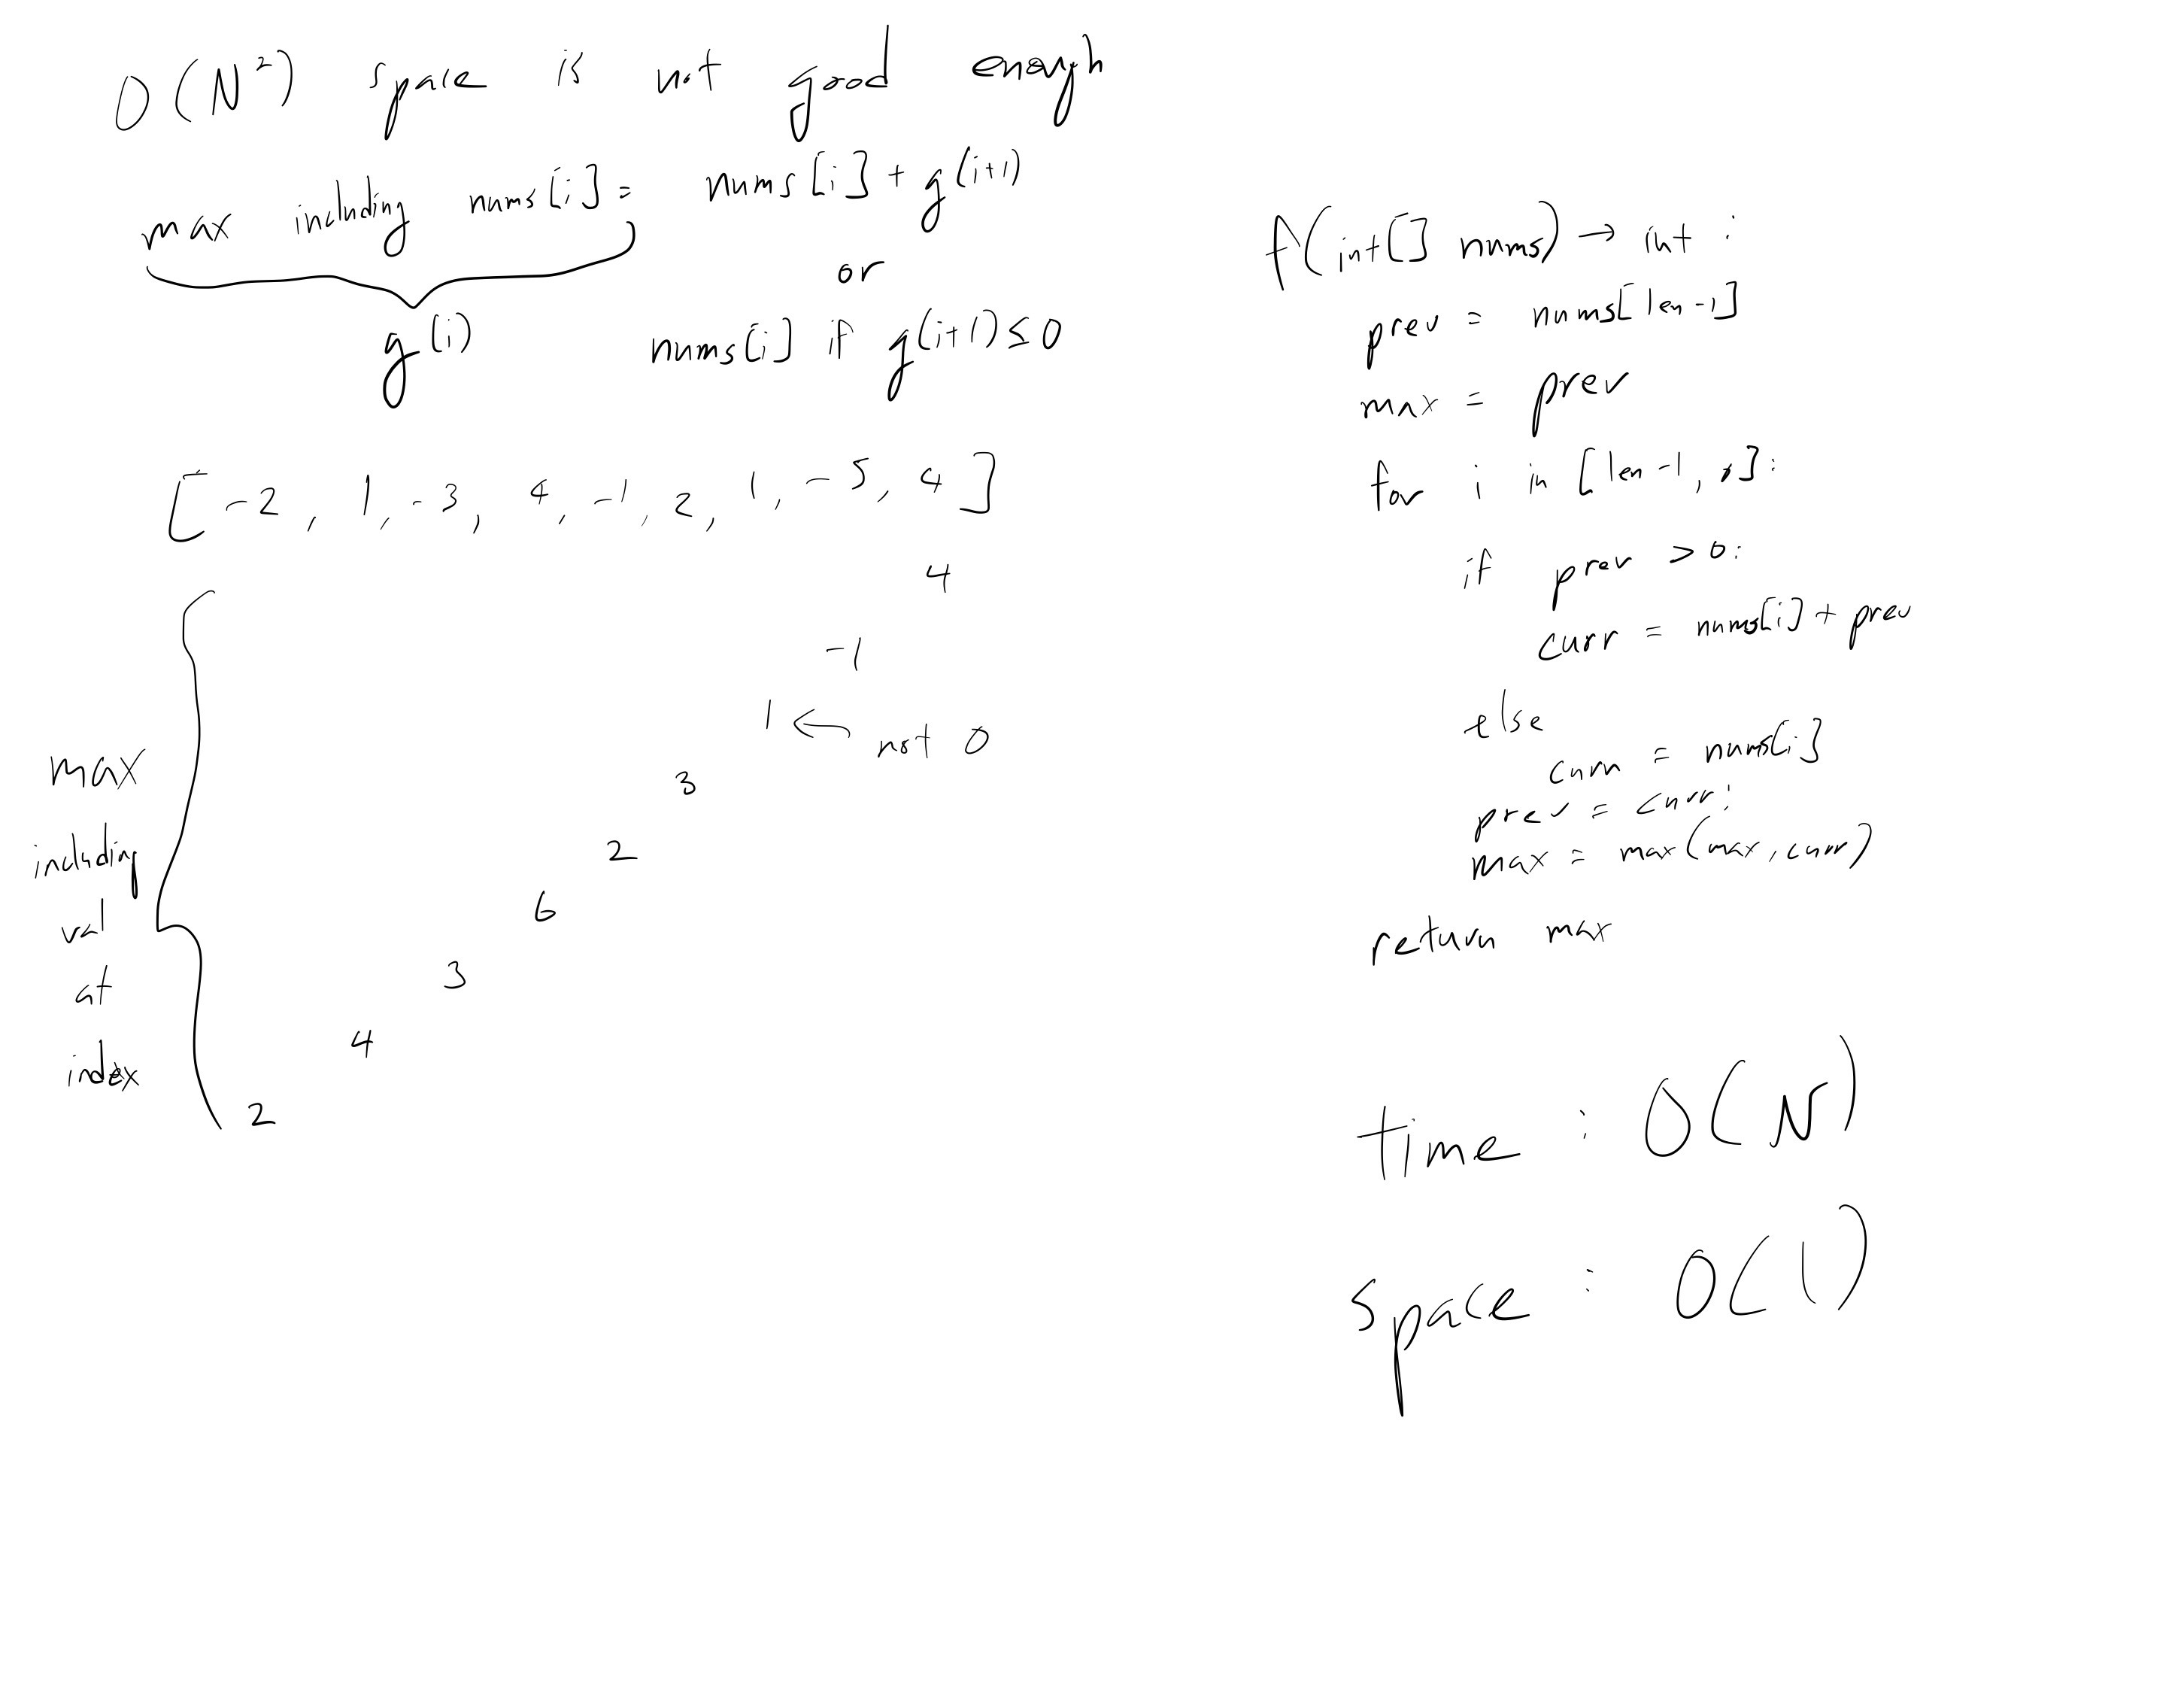 O(N²) space is not good enough
max including nums[i] = nums[i] + g(i+1)
or
g(i) nums[i] if g(i+1) ≤ 0
[-2, 1, -3, 4, -1, 2, 1, -5, 4]
4
-1
1 ← not 0
3
2
6
3
4
2
max
including
val
at
index
f(int[] nums) → int :
prev = nums[len-1]
max = prev
for i in [len-1, ]:
if prev > 0:
curr = nums[i] + prev
else
curr = nums[i]
prev = curr;
max = max(max, curr)
return max
time : O(N)
space : O(1)